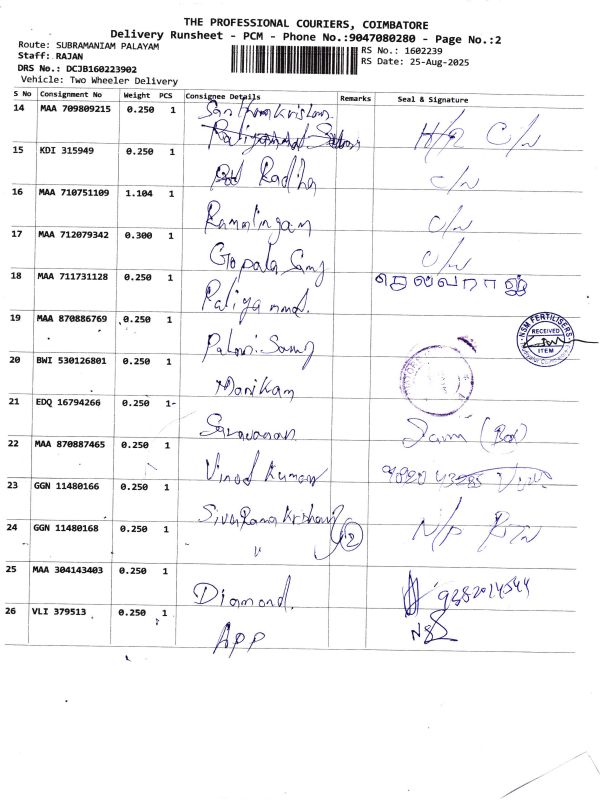 THE PROFESSIONAL COURIERS, COIMBATORE
Delivery Runsheet - PCM - Phone No.:9047080280 - Page No.:2
Route: SUBRAMANIAM PALAYAM
Staff: RAJAN
RS No.: 1602239
DRS No.: DCJB160223902
RS Date: 25-Aug-2025
Vehicle: Two Wheeler Delivery
S No Consignment No Weight PCS Consignee Details Remarks Seal & Signature
14 MAA 709809215 0.250 1 Santhanakrishnan
15 KDI 315949 0.250 1 Radha C/N
16 MAA 710751109 1.104 1 Ramalingam C/N
17 MAA 712079342 0.300 1 Gopala Samy C/N
18 MAA 711731128 0.250 1 Paliyammal செல்வராஜ்
19 MAA 870886769 0.250 1 Palani Samy NSM FERTILISERS RECEIVED ITEM
20 BWI 530126801 0.250 1 Manikam
21 EDQ 16794266 0.250 1 Saravanan
22 MAA 870887465 0.250 1 Vinod Kumar
23 GGN 11480166 0.250 1 Siva Rama Krishnan
24 GGN 11480168 0.250 1 " 2 N/P RTN
25 MAA 304143403 0.250 1 Diamond. 9382014544
26 VLI 379513 0.250 1 APP